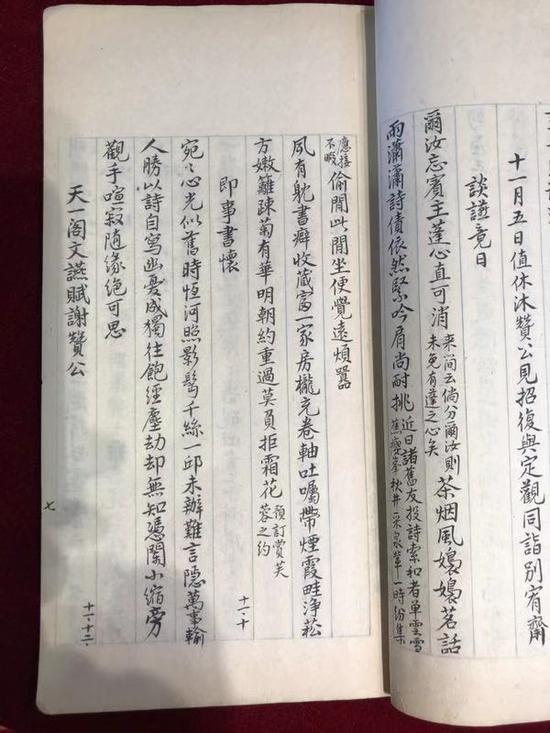 十一月五日值休沐贊公見招復與定觀同詣別宥齋
談讌竟日
爾汝忘賓主蓬心直可消來簡云倘分爾汝則未免有蓬之心矣茶烟風嫋嫋茗話
雨瀟瀟詩債依然緊吟肩尚耐挑近日諸舊友投詩索和者單雲雪蕉瘦峯秋井采泉輩一時紛集
應接不暇偷閒此閒坐便覺遠煩囂
夙有耽書癖收藏富一家房櫳充卷軸吐囑帶煙霞畦淨菘
方嫩籬疎菊有華明朝約重過莫負拒霜花預訂賞芙蓉之約
十一、十
即事書懷
宛宛心光似舊時恒河照影髩千絲一邱未辦難言隱萬事輸
人勝以詩自寫幽憂成獨往飽經塵劫却無知憑闌小縮旁
觀手喧寂隨緣絕可思
十一、十二、
天一阁文讌賦謝贊公
七